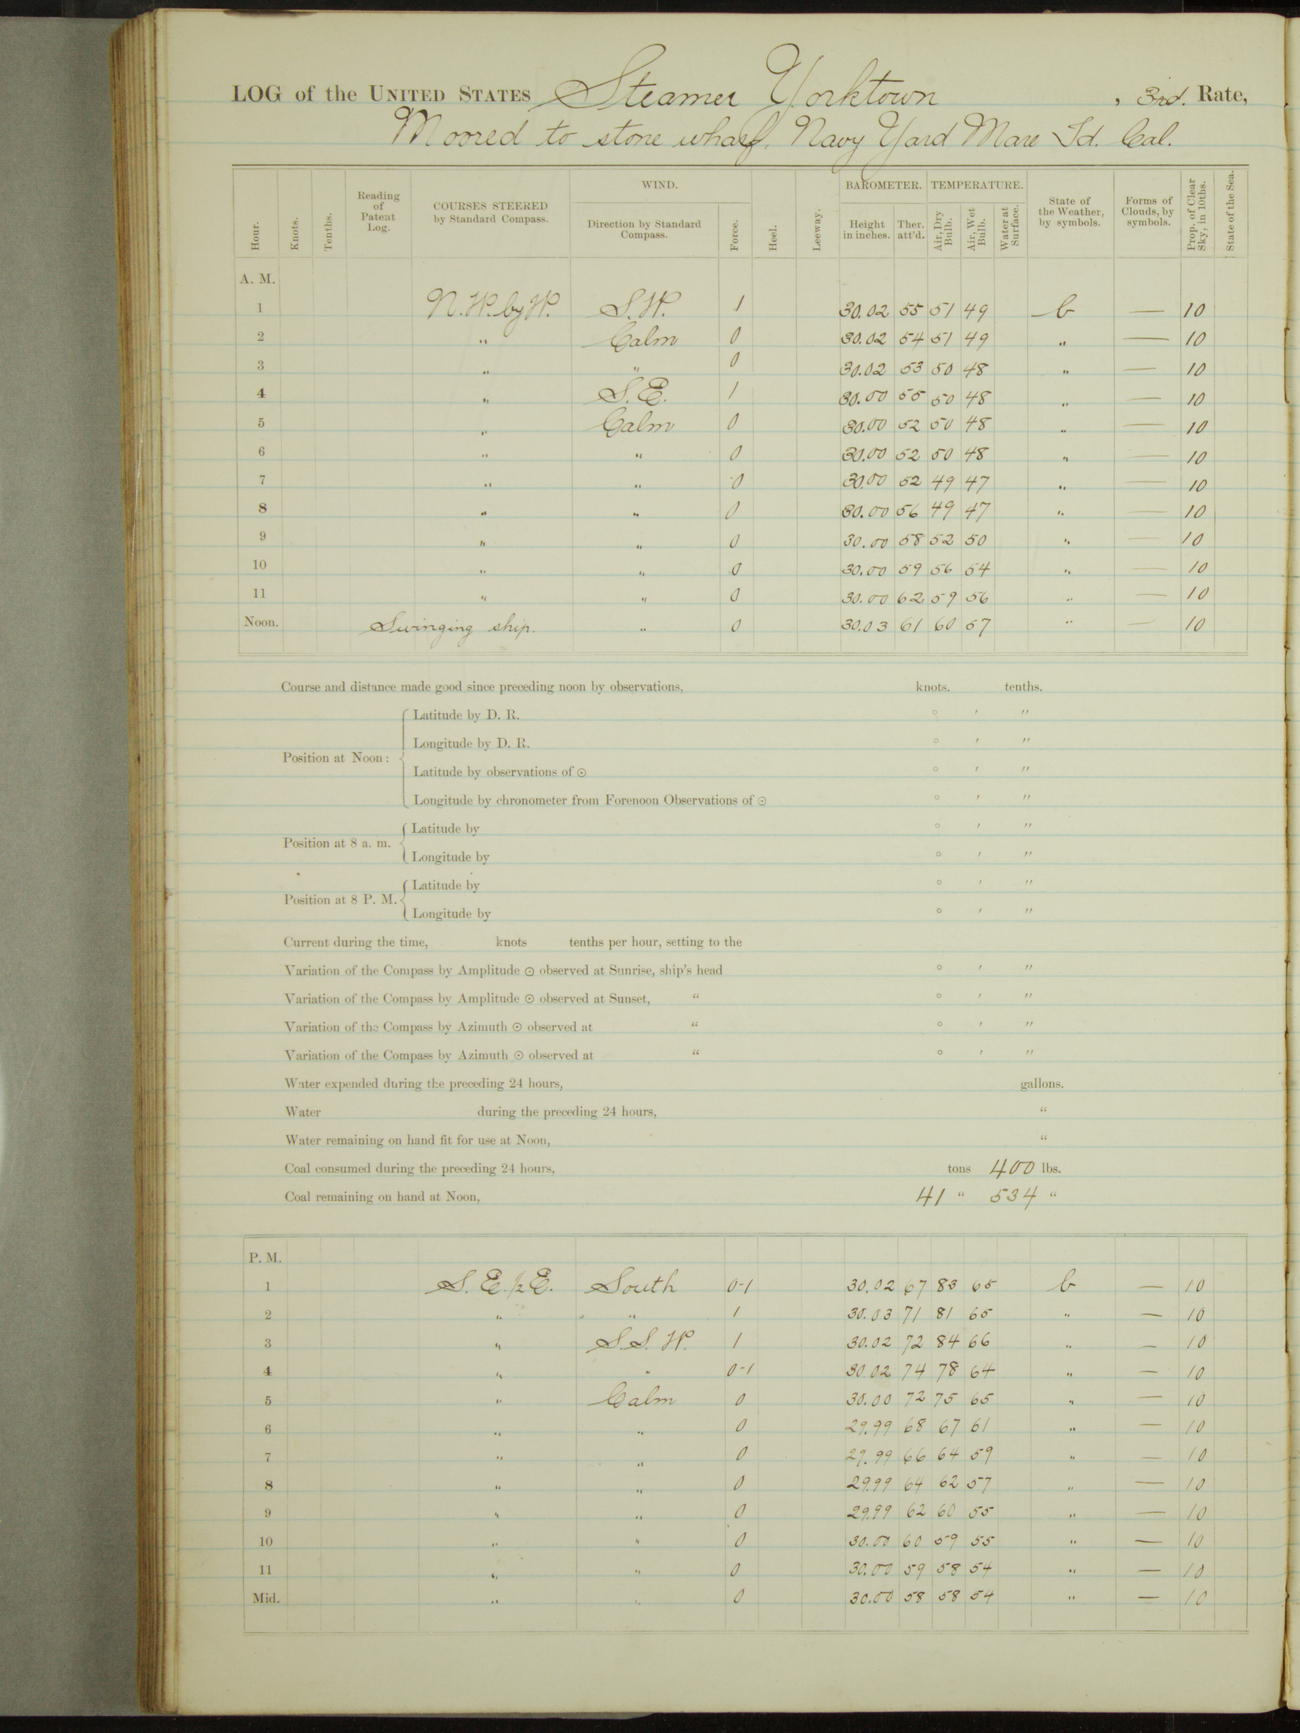 LOG of the UNITED STATES Steamer Yorktown, 3rd. Rate,
Moored to stone wharf, Navy Yard Mare Id. Cal.
Hour. Knots. Tenths. Reading of Patent Log. COURSES STEERED by Standard Compass. WIND. Direction by Standard Compass. Force. Heel. Leeway. BAROMETER. Height in inches. Ther. att'd. TEMPERATURE. Air, Dry Bulb. Air, Wet Bulb. Water at Surface. State of the Weather, by symbols. Forms of Clouds, by symbols. Prop. of Clear Sky, in 10ths. State of the Sea.
A. M.
1 N.W. by W. S.W. 1 30.02 55 51 49 b — 10
2 " Calm 0 30.02 54 51 49 " — 10
3 " " 0 30.02 53 50 48 " — 10
4 " S.E. 1 30.00 55 50 48 " — 10
5 " Calm 0 30.00 52 50 48 " — 10
6 " " 0 30.00 52 50 48 " — 10
7 " " 0 30.00 52 49 47 " — 10
8 " " 0 30.00 56 49 47 " — 10
9 " " 0 30.00 58 52 50 " — 10
10 " " 0 30.00 59 56 54 " — 10
11 " " 0 30.00 62 59 56 " — 10
Noon. Swinging ship. " 0 30.03 61 60 57 " — 10
Course and distance made good since preceding noon by observations, knots. tenths.
Latitude by D. R. ° ′ ″
Longitude by D. R. ° ′ ″
Position at Noon:
Latitude by observations of ☉ ° ′ ″
Longitude by chronometer from Forenoon Observations of ☉ ° ′ ″
Latitude by ° ′ ″
Position at 8 a. m.
Longitude by ° ′ ″
Latitude by ° ′ ″
Position at 8 P. M.
Longitude by ° ′ ″
Current during the time, knots tenths per hour, setting to the
Variation of the Compass by Amplitude ☉ observed at Sunrise, ship's head ° ′ ″
Variation of the Compass by Amplitude ☉ observed at Sunset, " ° ′ ″
Variation of the Compass by Azimuth ☉ observed at " ° ′ ″
Variation of the Compass by Azimuth ☉ observed at " ° ′ ″
Water expended during the preceding 24 hours, gallons.
Water during the preceding 24 hours, "
Water remaining on hand fit for use at Noon, "
Coal consumed during the preceding 24 hours, tons 400 lbs.
Coal remaining on hand at Noon, 41 " 534 "
P. M.
1 S.E. ½ E. South 0-1 30.02 67 83 65 b — 10
2 " " 1 30.03 71 81 65 " — 10
3 " S.S.W. 1 30.02 72 84 66 " — 10
4 " " 0-1 30.02 74 78 64 " — 10
5 " Calm 0 30.00 72 75 65 " — 10
6 " " 0 29.99 68 67 61 " — 10
7 " " 0 29.99 66 64 59 " — 10
8 " " 0 29.99 64 62 57 " — 10
9 " " 0 29.99 62 60 55 " — 10
10 " " 0 30.00 60 59 55 " — 10
11 " " 0 30.00 59 58 54 " — 10
Mid. " " 0 30.00 58 58 54 " — 10